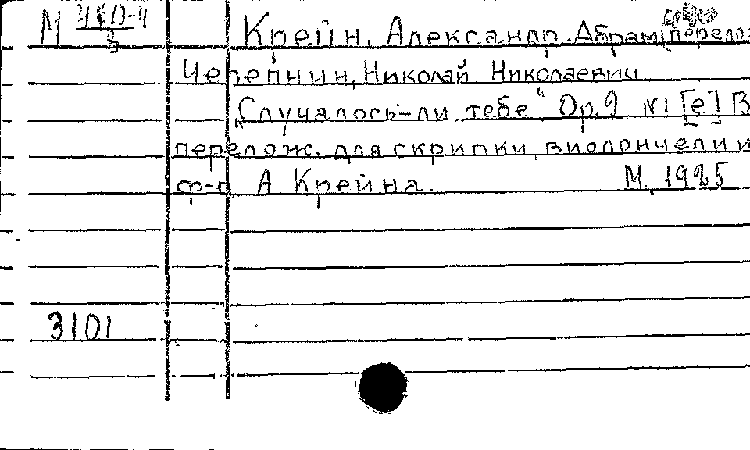 Крейн, Александр Абрам (перелож
Черепнин, Николай Николаевич
„Случалось-ли тебе" Op. 9 №1 [e] В
перелож. для скрипки, виолончели и
ф-п А Крейна. М, 1925
3101